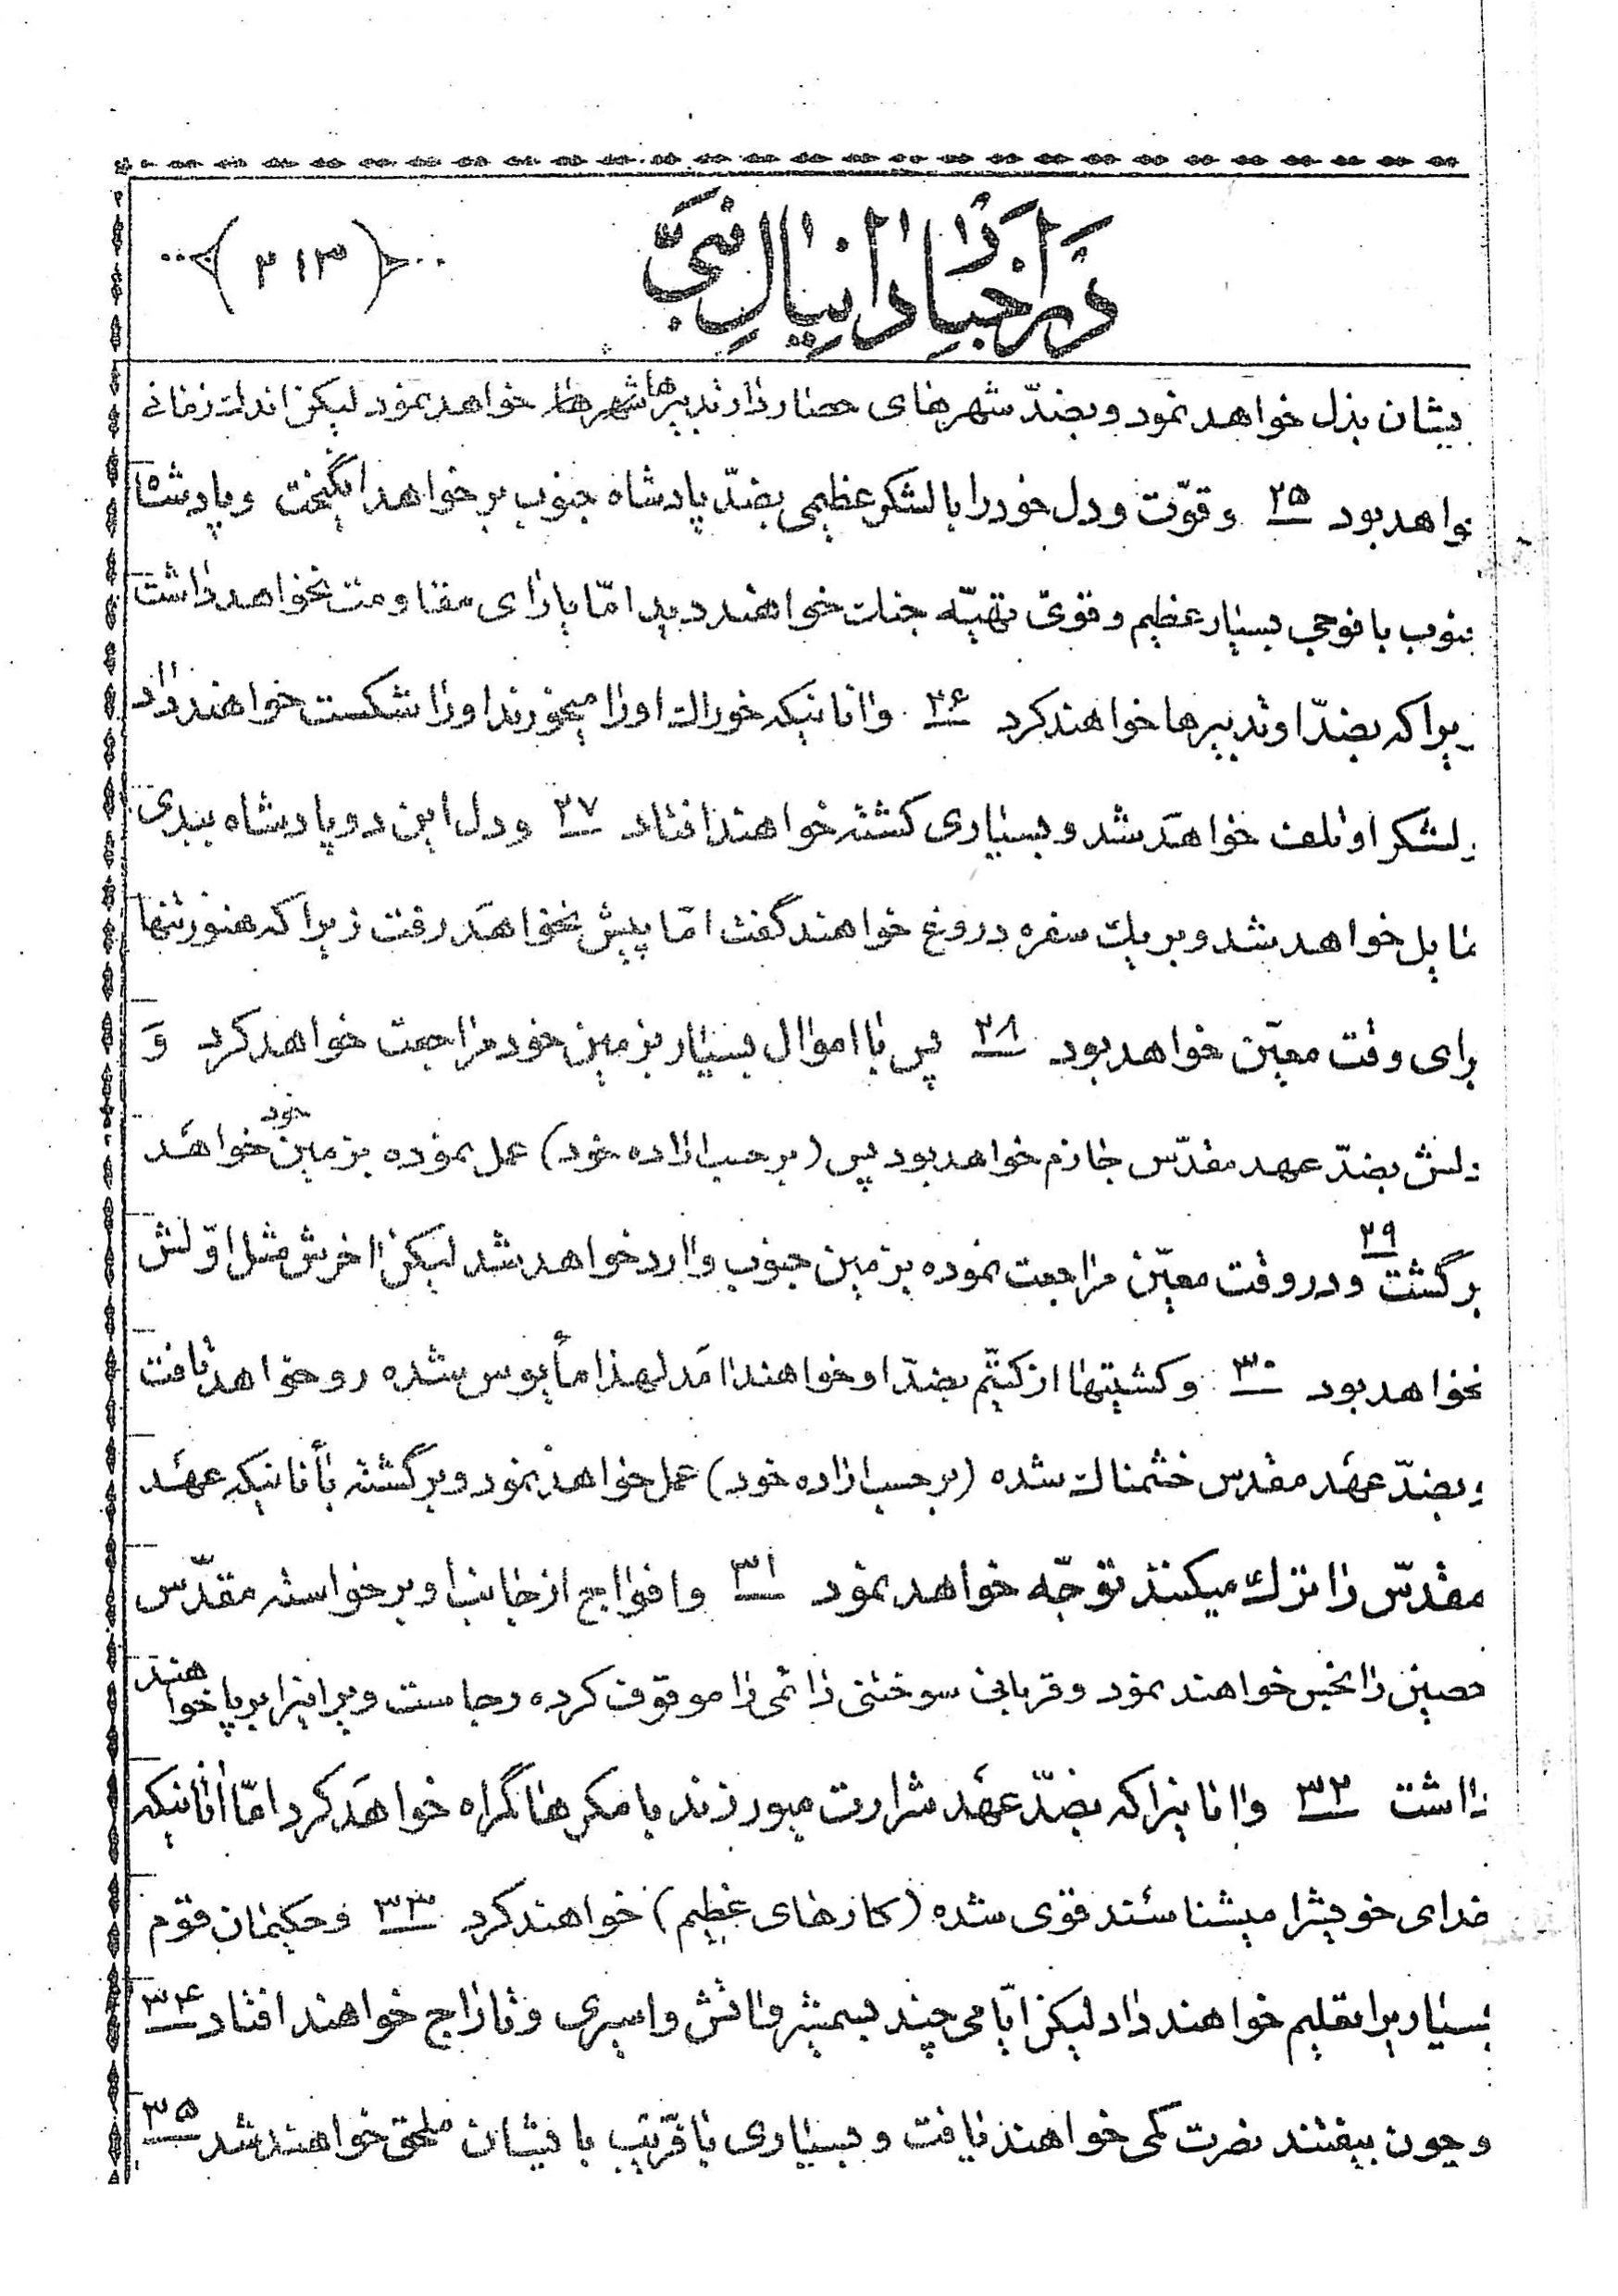 در اخبار دانیال نبی
۲۱۳
یشان بذل خواهد نمود و بضدّ شهرهای حصار دار تدبیرها شهرها خواهد نمود لیکن اندک زمانی
واهد بود ۲۵ و قوّت و دل خود را با لشکر عظیمی بضدّ پادشاه جنوب بر خواهد انگیخت و پادشاه
نوب با فوجی بسیار عظیم و قوی تهیّه جنک خواهند دید امّا یارای مقاومت نخواهد داشت
یرا که بضدّ او تدبیرها خواهند کرد ۲۶ و انانیکه خوراک اورا میخورند اورا شکست خواهند داد
لشکر او تلف خواهد شد و بسیاری کشته خواهند افتاد ۲۷ و دل این دو پادشاه ببدی
مایل خواهد شد و بر یک سفره دروغ خواهند گفت امّا پیش نخواهد رفت زیرا که هنوز نتها
برای وقت معیّن خواهد بود ۲۸ پس با اموال بسیار بزمین خود مراجعت خواهد کرد وَ
دلش بضدّ عهد مقدّس جازم خواهد بود پس (بر حسب اراده خود) عمل نموده بزمین خود خواهد
برگشت ۲۹ و در وقت معیّن مراجعت نموده بزمین جنوب وارد خواهد شد لیکن اخرش مثل اوّلش
نخواهد بود ۳۰ و کشتیها از کتّیم بضدّ او خواهند امد لهذا مأیوس شده رو خواهد تافت
و بضدّ عهد مقدس خشمناک شده (بر حسب اراده خود) عمل خواهد نمود و برگشته بأنانیکه عهد
مقدّس را ترک میکنند توجّه خواهد نمود ۳۱ و افواج از جانب او بر خواسته مقدّس
حصین را نجس خواهند نمود و قربانی سوختنی دائمی را موقوف کرده رجاست ویرانیرا بر پا خواهند
داشت ۳۲ و انانیرا که بضدّ عهد شرارت میورزند با مکرها گمراه خواهد کرد امّا آنانیکه
خدای خویشرا میشناسند قوی شده (کارهای عظیم) خواهند کرد ۳۳ و حکیمان قوم
بسیاریرا تعلیم خواهند داد لیکن ایّامی چند بشمشیر و اتش و اسیری و تاراج خواهند افتاد ۳۴
و چون بیفتند نصرت کمی خواهند یافت و بسیاری با فریب با یشان ملحق خواهند شد ۳۵